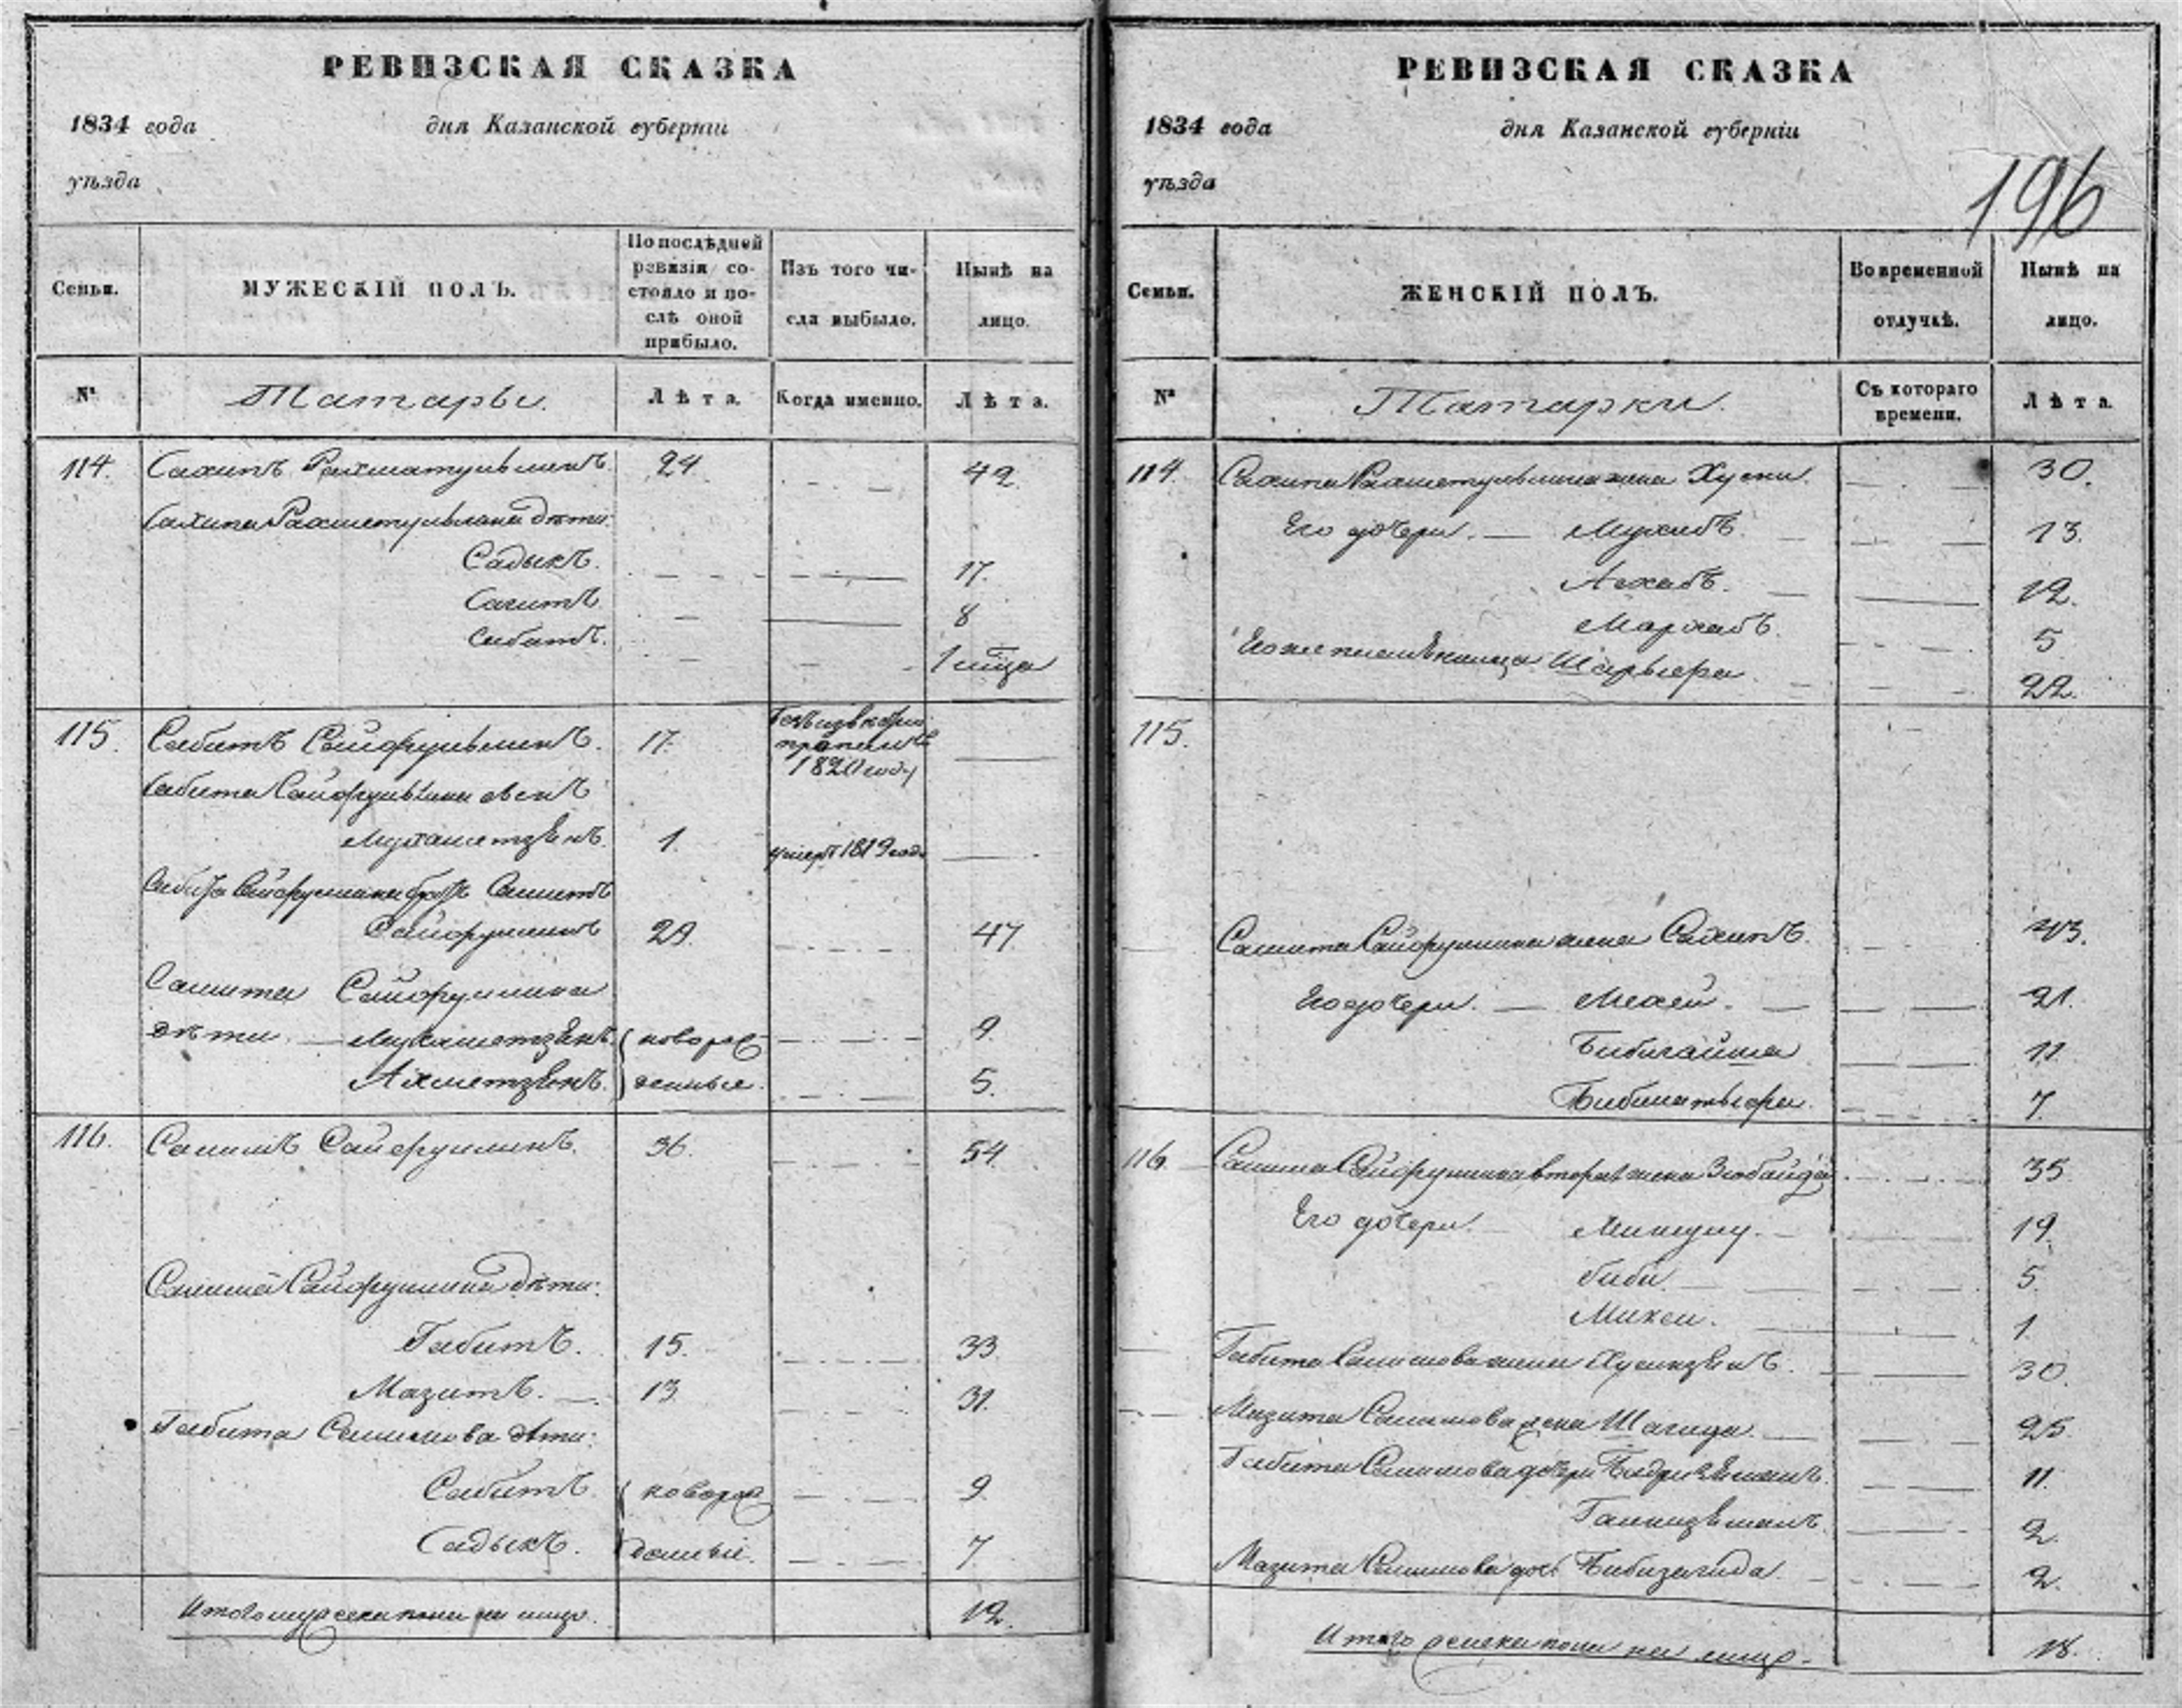 РЕВИЗСКАЯ СКАЗКА
1834 года дня Казанской губерніи
уѣзда
Семьи. МУЖЕСКІЙ ПОЛЪ. По послѣдней ревизіи состояло и послѣ оной прибыло. Изъ того числа выбыло. Нынѣ на лицо.
№ Татары. Лѣта. Когда именно. Лѣта.
114. Сахипъ Рахматульлинъ 24 42
Сахипа Рахметульлина дѣти:
Садыкъ. 17.
Сагитъ 8
Сабитъ. 1
115. Сабитъ Сайфульлинъ. 17.
1820 году
Сабита Сайфульлина сынъ
Мухаметзянъ 1. умеръ 1819 года
Сабита Сайфуллина братъ Самитъ
Сайфуллинъ 29. 47
Самита Сайфуллина
дѣти — Мухаметзянъ новорож 9.
Ахметзянъ. денные. 5.
116. Салимъ Сайфуллинъ. 36. 54.
Салима Сайфуллина дѣти:
Габитъ. 15. 33
Мазитъ. 13 31.
Габита Салимова дѣти:
Сабитъ новорож 9
Садыкъ. денные. 7
Итого мужеска пола на лицо. 12.
РЕВИЗСКАЯ СКАЗКА
1834 года дня Казанской губерніи
уѣзда
196
Семьи. ЖЕНСКІЙ ПОЛЪ. Во временной отлучкѣ. Нынѣ на лицо.
№ Татарки. Съ котораго времени. Лѣта.
114. Сахипа Рахметульлина жена Хусни. 30.
Его дочери. — 13.
12.
Мархабъ. 5
22.
115.
Самита Сайфуллина жена 43.
Его дочери. — 21.
Бибигайша 11
7
116. Салима Сайфуллина вторая жена Зюбайда 35
Его дочери. 19.
Биби 5.
1.
Габита Салимова жена 30.
Мазита Салимова жена Шагида. 25
Габита Салимова дочери 11.
2.
Мазита Салимова доч: Бибизагида. 2.
Итого женска пола на лицо. 18.